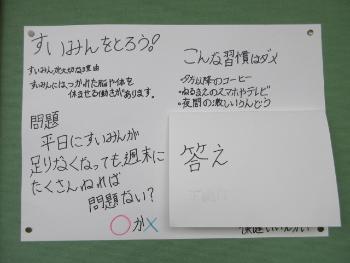 すいみんをとろう!
すいみんが大切な理由
すいみんには、つかれた脳や体を
休ませる働きがあります。
問題
平日にすいみんが
足りなくなっても、週末に
たくさんねれば
問題ない?
○か×
こんな習慣はダメ
・夕方以降のコーヒー
・ねるまえのスマホやテレビ
・夜間の激しいうんどう
答え
保健いいんかい